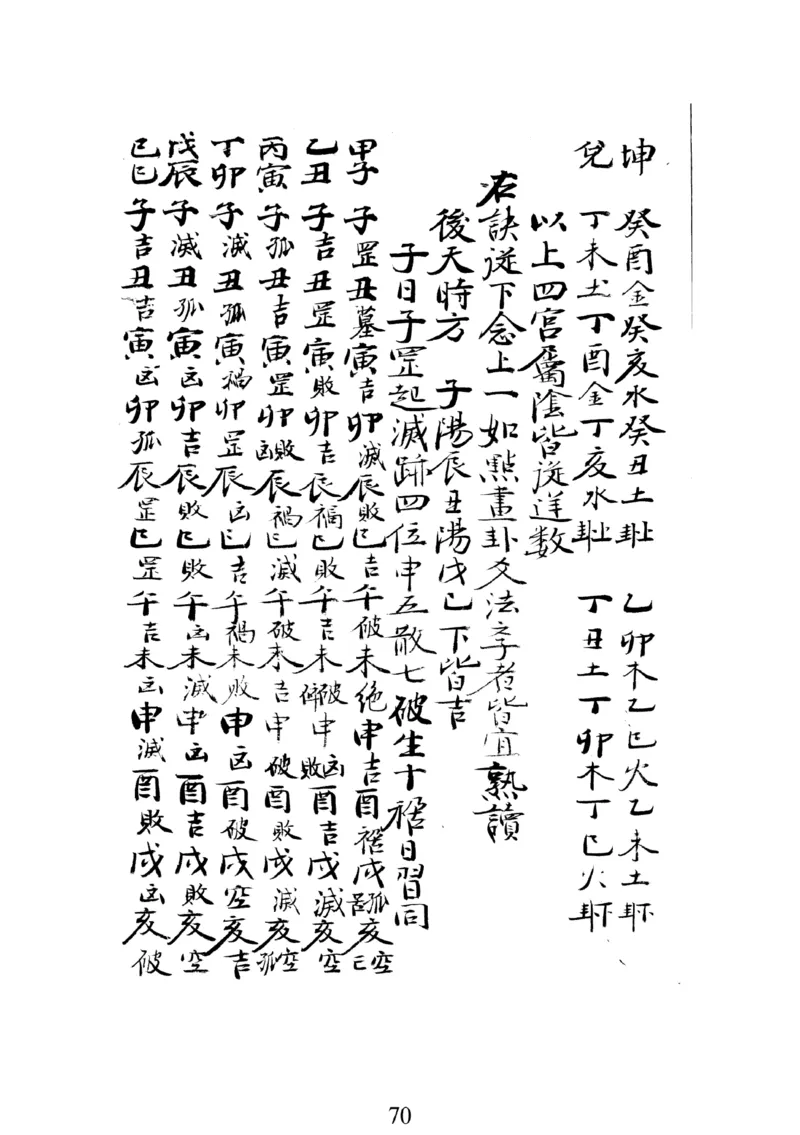 坤 癸酉金癸亥水癸丑土卦上 乙卯木乙巳火乙未土卦下
兌 丁未土丁酉金丁亥水卦上 丁丑土丁卯木丁巳火卦下
以上四宮屬陰皆從逆数
右訣從下念上一如點畫卦爻法李者皆宜熟讀
後天時方 子陽辰丑陽戊巳下皆吉
子日子罡起滅跡四位申五散七破生十禍日習同
甲子 子罡丑墓寅吉卯滅辰敗巳吉午破未絶申吉酉禍戌孤亥空
乙丑 子吉丑罡寅敗卯吉辰禍巳敗午吉未破申敗凶酉吉戌滅亥空
丙寅 子孤丑吉寅罡卯凶敗辰禍巳滅午破未吉申破酉敗戌滅亥孤空
丁卯 子滅丑孤寅禍卯罡辰凶巳吉午禍未敗申凶酉破戌空亥吉
戊辰 子滅丑孤寅凶卯吉辰敗巳敗午凶未滅申凶酉吉戌敗亥空
己巳 子吉丑吉寅凶卯孤辰罡巳罡午吉未凶申滅酉敗戌凶亥破
70